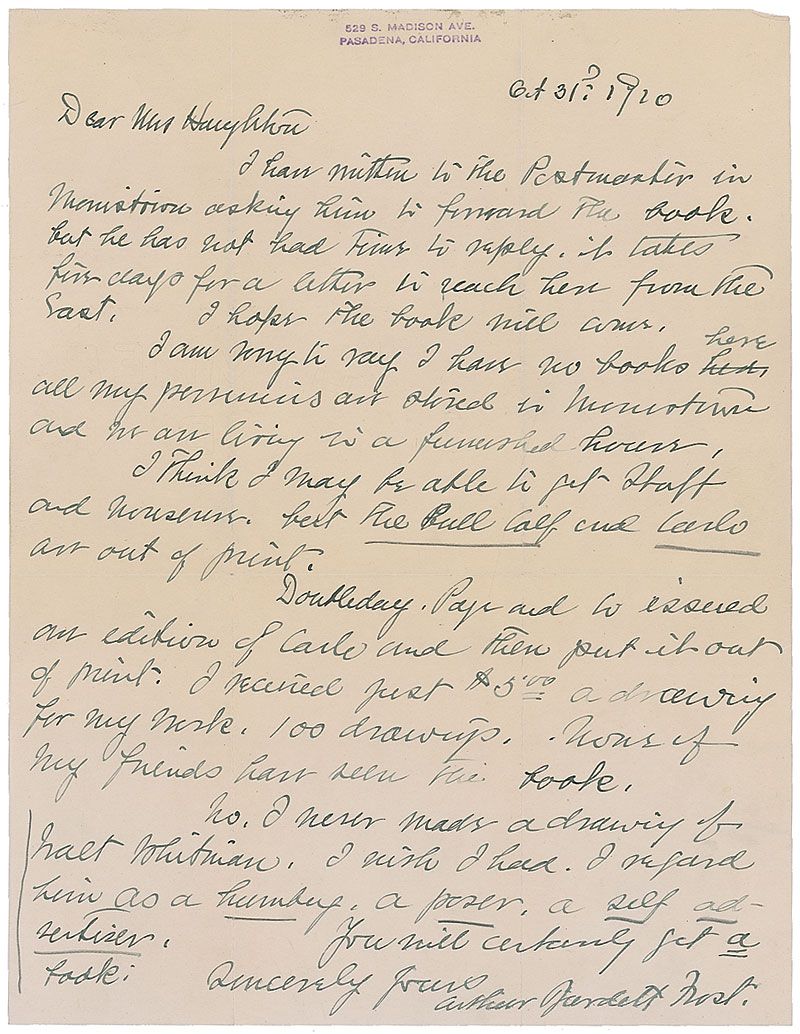 529 S. MADISON AVE.
PASADENA, CALIFORNIA
Oct 31st 1920
Dear Mrs Haughton
I have written to the Postmaster in
Morristown asking him to forward the book.
but he has not had time to reply. it takes
five days for a letter to reach here from the
East. I hope the book will come.
here
I am sorry to say I have no books
all my possessions are stored in Morristown
and we are living in a furnished house.
I think I may be able to get Stuff
and nonsense. but The Bull Calf and Carlo
are out of print.
Doubleday. Page and Co issued
an edition of Carlo and then put it out
of print. I received just $5.00 a drawing
for my work. 100 drawings. None of
my friends have seen the book.
No. I never made a drawing of
Walt Whitman. I wish I had. I regard
him as a humbug, a poser, a self ad-
vertiser. You will certainly get a
book. Sincerely yours
Arthur Burdett Frost.